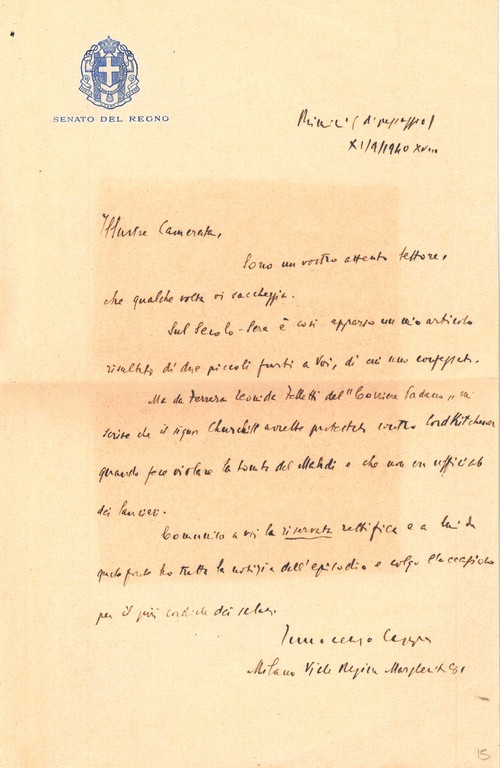 SENATO DEL REGNO
Rimini (di passaggio)
XI/9/1940 XVIII
Illustre Camerata,
Sono un vostro attento lettore,
che qualche volta vi saccheggia.
Sul Secolo-Sera è così apparso un mio articolo
risultato di due piccoli furti a Voi, di cui uno confessato.
Ma da Ferrara Leonida Felletti del "Corriere Padano" mi
scrive che il signor Churchill avrebbe protestato contro Lord Kitchener
quando fece violare la tomba del Mahdi e che non era ufficiale
dei lancieri.
Comunico a voi la riservata rettifica e a lui da
quale fonte ho tratta la notizia dell'episodio e colgo l'occasione
per il più cordiale dei saluti.
Innocenzo Cappa
Milano Viale Regina Margherita
15